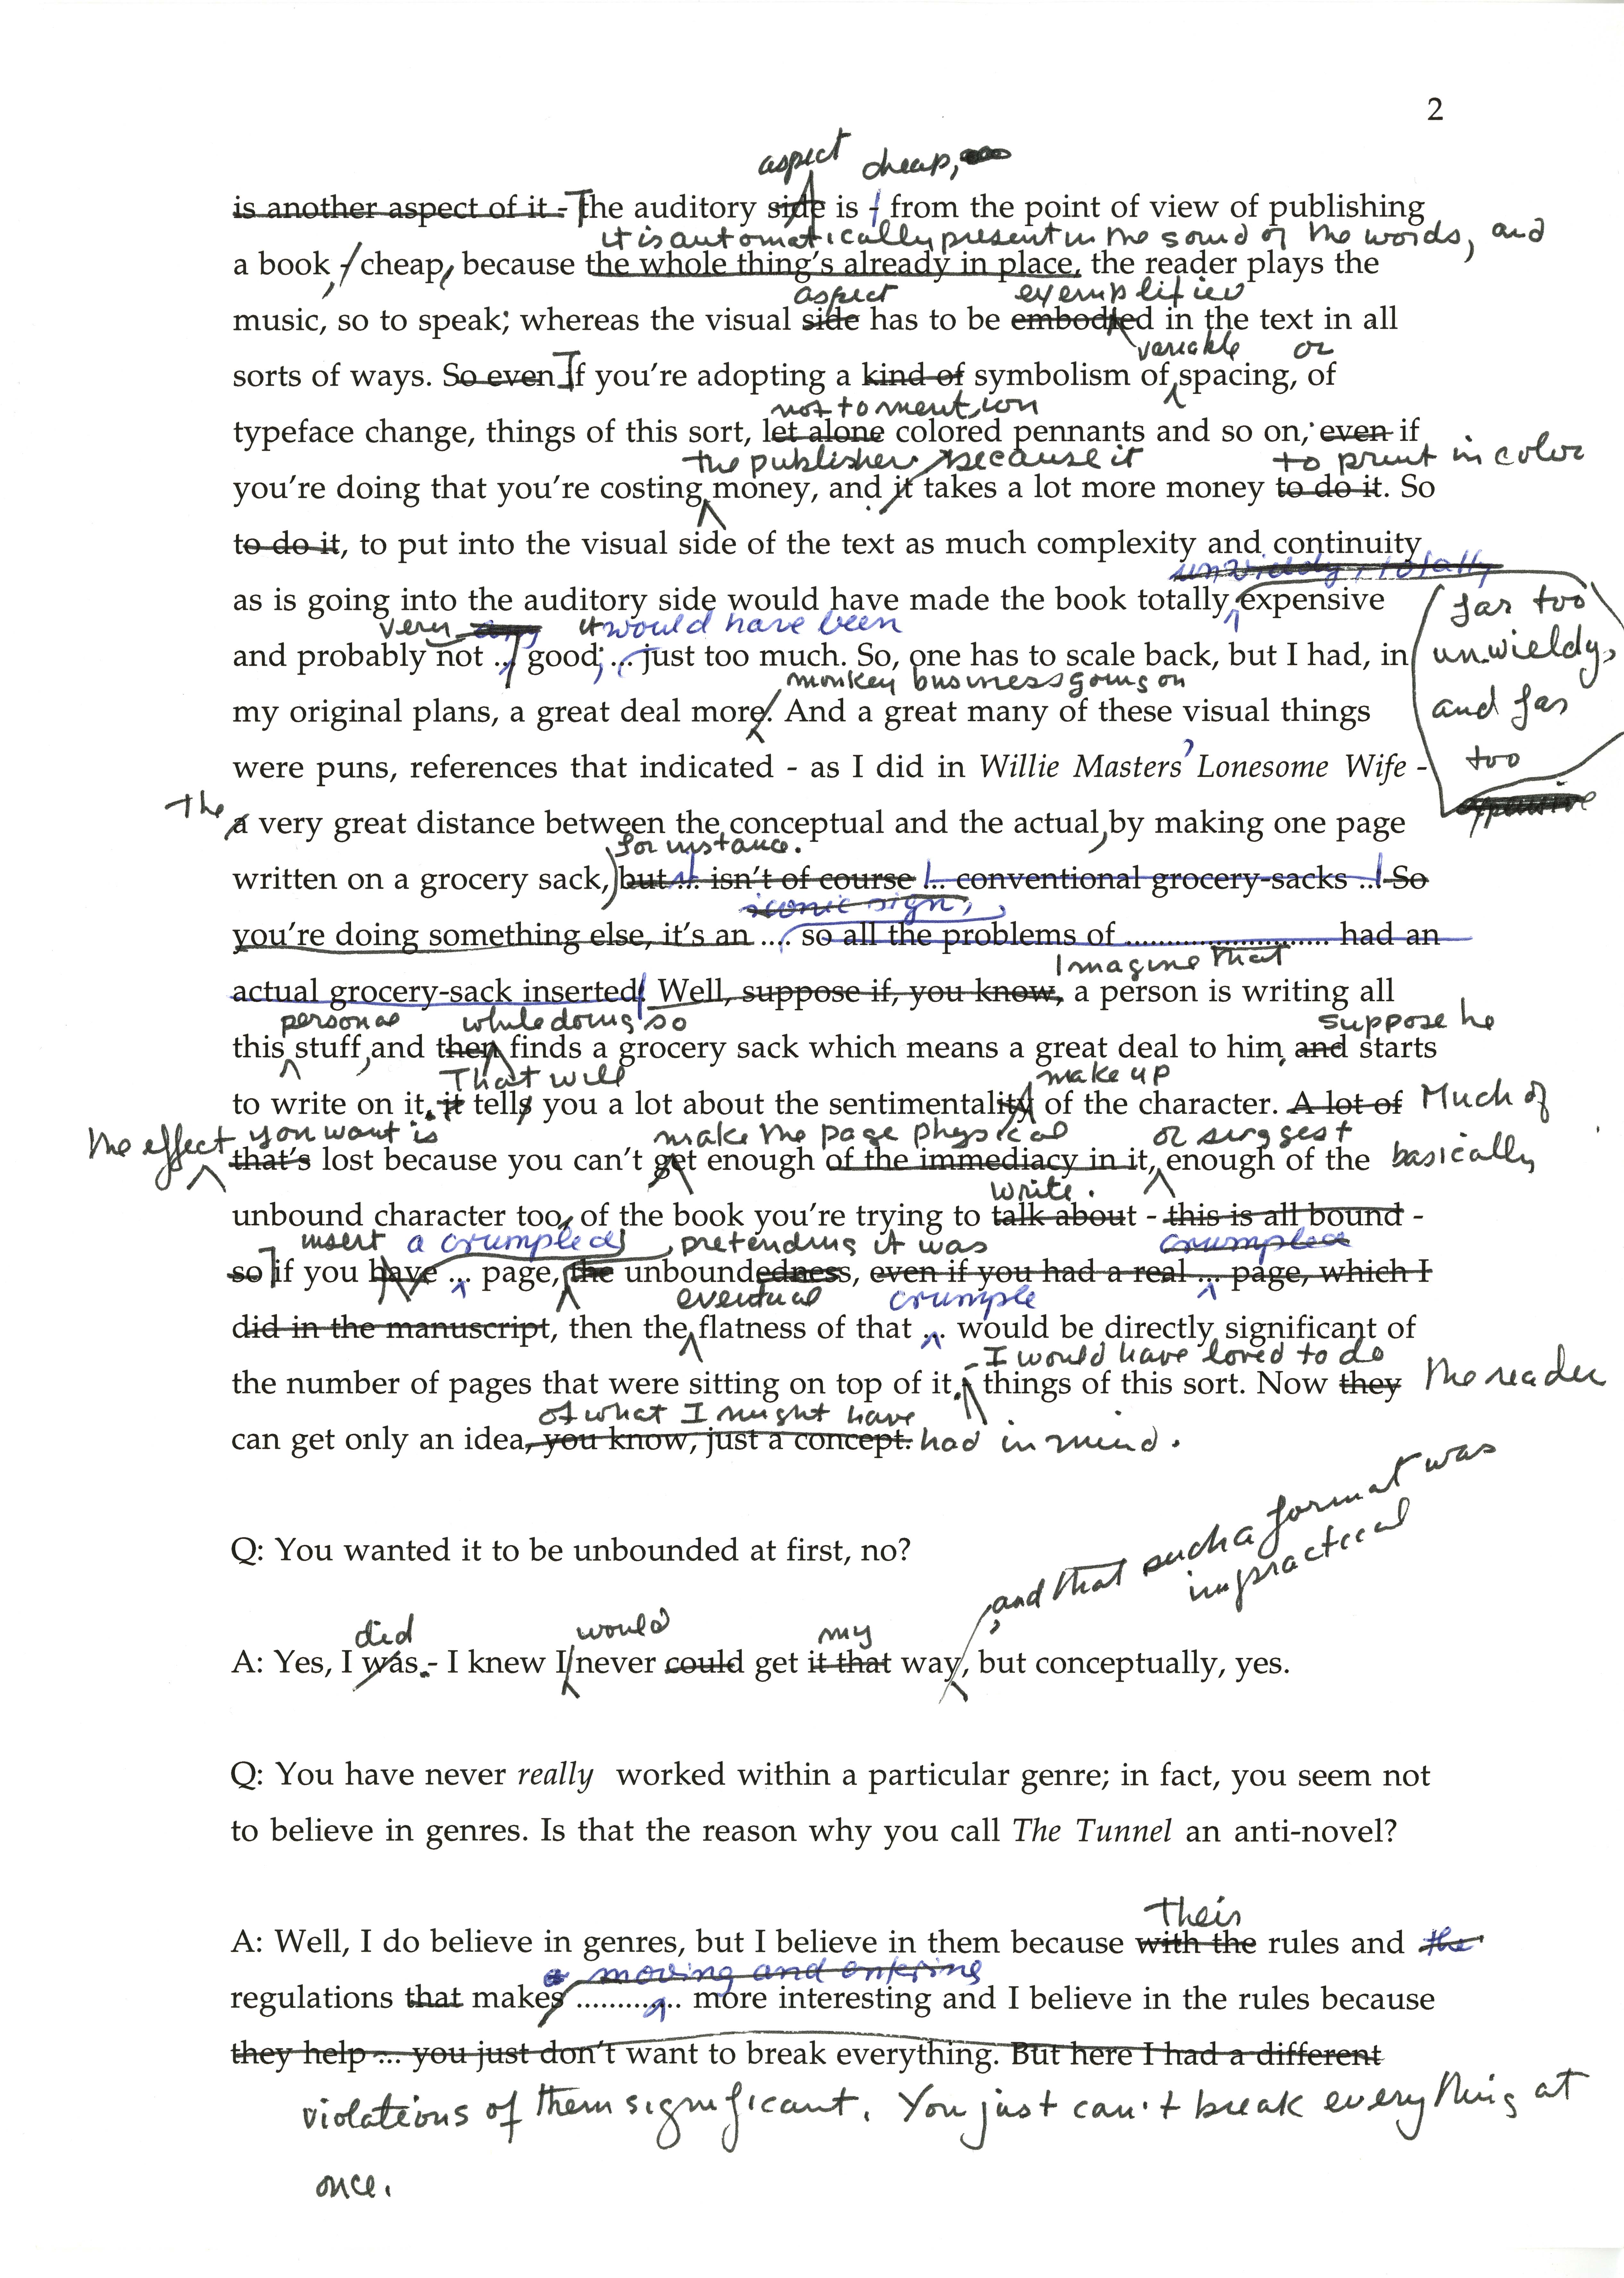 2
aspect cheap,
is another aspect of it - The auditory side is - from the point of view of publishing
it is automatically present in the sound of the words, and
a book, - cheap, because the whole thing's already in place, the reader plays the
aspect exemplified
music, so to speak; whereas the visual side has to be embodied in the text in all
variable or
sorts of ways. So even If you're adopting a kind of symbolism of spacing, of
not to mention
typeface change, things of this sort, let alone colored pennants and so on, even if
the publisher because it to print in color
you're doing that you're costing money, and it takes a lot more money to do it. So
to do it, to put into the visual side of the text as much complexity and continuity
unwieldy, totally
as is going into the auditory side would have made the book totally expensive
far too
unwieldy,
and far
too
expensive
very any it would have been
and probably not ... good; ... just too much. So, one has to scale back, but I had, in
monkey business going on
my original plans, a great deal more. And a great many of these visual things
were puns, references that indicated - as I did in Willie Masters' Lonesome Wife -
The
a very great distance between the conceptual and the actual, by making one page
for instance.
written on a grocery sack, but ... isn't of course ... conventional grocery-sacks ... So
iconic sign,
you're doing something else, it's an .... so all the problems of ...................... had an
Imagine that
actual grocery-sack inserted. Well, suppose if, you know, a person is writing all
personal while doing so suppose he
this stuff, and then finds a grocery sack which means a great deal to him, and starts
That will make up
to write on it. it tells you a lot about the sentimentality of the character. A lot of Much of
the effect you want is make the page physical or suggest
that's lost because you can't get enough of the immediacy in it, enough of the basically
write.
unbound character too, of the book you're trying to talk about - this is all bound -
insert a crumpled , pretending it was crumpled
so If you have ... page, the unboundedness, even if you had a real ... page, which I
eventual crumple
did in the manuscript, then the flatness of that ... would be directly significant of
- I would have loved to do
the number of pages that were sitting on top of it. things of this sort. Now they the reader
of what I might have
can get only an idea, you know, just a concept. had in mind.
Q: You wanted it to be unbounded at first, no?
, and that such a format was
impractical
did would my
A: Yes, I was. - I knew I never could get it that way, but conceptually, yes.
Q: You have never really worked within a particular genre; in fact, you seem not
to believe in genres. Is that the reason why you call The Tunnel an anti-novel?
their
A: Well, I do believe in genres, but I believe in them because with the rules and the
moving and
regulations that makes ............. more interesting and I believe in the rules because
they help ... you just don't want to break everything. But here I had a different
violations of them significant. You just can't break everything at
once.